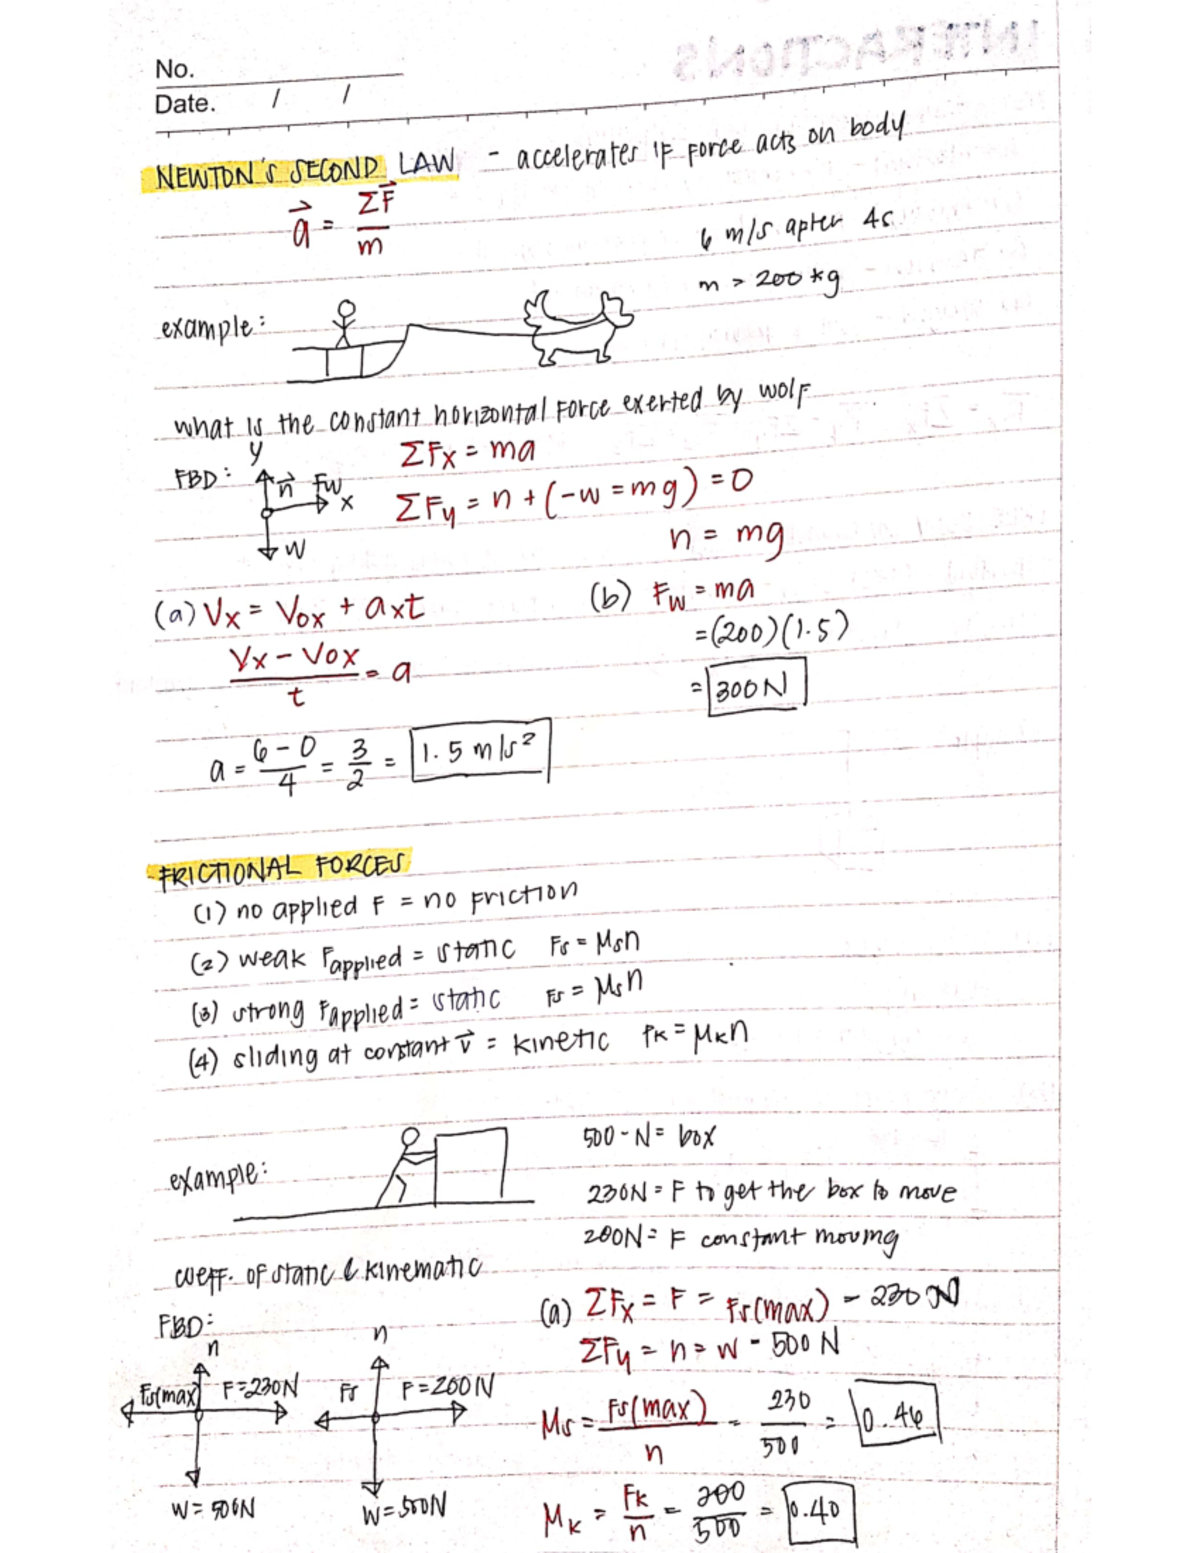 INTERACTIONS
No.
Date. / /
NEWTON'S SECOND LAW - accelerates if force acts on body
a⃗ = ΣF⃗ / m
6 m/s after 4s
m > 200 kg
example:
what is the constant horizontal force exerted by wolf
FBD: y n⃗ Fw x w
ΣFx = ma
ΣFy = n + (-w = mg) = 0
n = mg
(a) Vx = Vox + axt
Vx - Vox / t = a
a = 6 - 0 / 4 = 3 / 2 = 1.5 m/s²
(b) Fw = ma
= (200)(1.5)
= 300N
FRICTIONAL FORCES
(1) no applied F = no friction
(2) weak Fapplied = static Fs = Msn
(3) strong Fapplied = static Fs = Msn
(4) sliding at constant v⃗ = kinetic Fk = Mkn
example:
500-N = box
230N = F to get the box to move
200N = F constant moving
coeff. of static & kinematic
FBD:
n Fs(max) F=230N W=500N
n Fs F=200N W=500N
(a) ΣFx = F = Fs(max) - 230 N
ΣFy = n = w - 500 N
Ms = Fs(max) / n = 230 / 500 = 0.46
Mk = Fk / n = 200 / 500 = 0.40